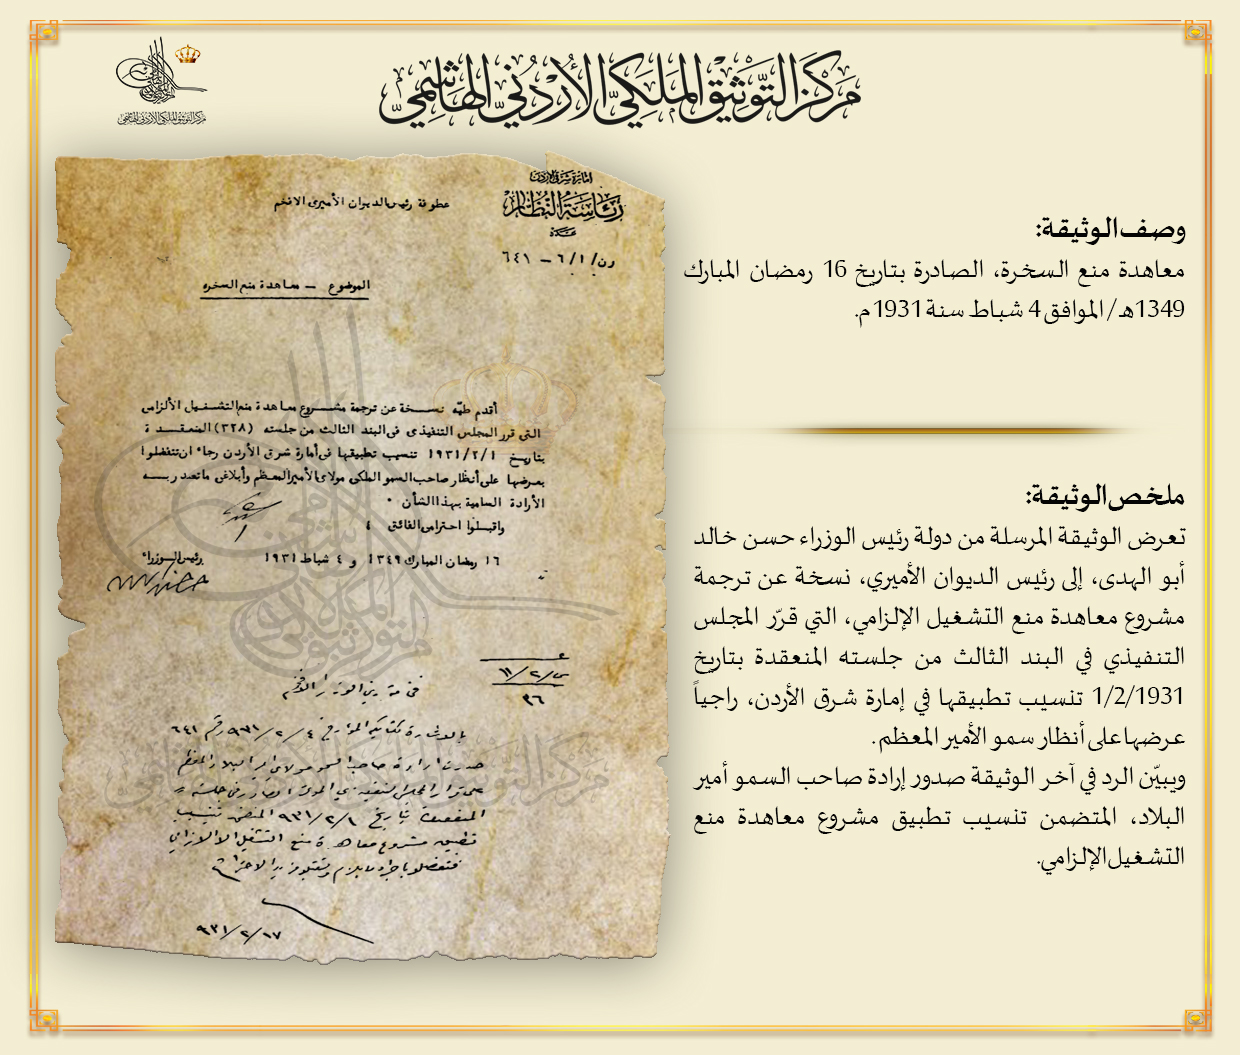 مركز التوثيق الملكي الأردني الهاشمي
مركز التوثيق الملكي الأردني الهاشمي
وصف الوثيقة:
معاهدة منع السخرة، الصادرة بتاريخ 16 رمضان المبارك
1349هـ/ الموافق 4 شباط سنة 1931م.
ملخص الوثيقة:
تعرض الوثيقة المرسلة من دولة رئيس الوزراء حسن خالد
أبو الهدى، إلى رئيس الديوان الأميري، نسخة عن ترجمة
مشروع معاهدة منع التشغيل الإلزامي، التي قرّر المجلس
التنفيذي في البند الثالث من جلسته المنعقدة بتاريخ
1/2/1931 تنسيب تطبيقها في إمارة شرق الأردن، راجياً
عرضها على أنظار سمو الأمير المعظم.
ويبيّن الرد في آخر الوثيقة صدور إرادة صاحب السمو أمير
البلاد، المتضمن تنسيب تطبيق مشروع معاهدة منع
التشغيل الإلزامي.
امارة شرق الاردن
رئاسة النظار
عدد
رن/١/٦ – ٦٤١
عطوفة رئيس الديوان الأميري الافخم
الموضوع – معاهدة منع السخره
أقدم طيّه نسخة عن ترجمة مشروع معاهدة منع التشغيل الألزامى
التى قرر المجلس التنفيذى فى البند الثالث من جلسته (٣٢٨) المنعقدة
بتاريخ ١٩٣١/٢/١ تنسيب تطبيقها فى أمارة شرق الأردن رجاء ان تتفضلوا
بعرضها على أنظار صاحب السمو الملكى مولاى الأمير المعظم وأبلاغى ما تصدر به
الأرادة السامية بهذا الشأن ٠
واقبلوا احترامى الفائق ٤
١٦ رمضان المبارك ١٣٤٩ و ٤ شباط ١٩٣١
رئيس الوزراء
٣٦
فخامة رئيس الوزراء الافخم
بالاشارة لكتابكم المؤرخ ٤/٢/٩٣١ رقم ٦٤١
صدرت ارادة صاحب السمو مولاي امير البلاد المعظم
على قرار المجلس التنفيذي الموقر الصادر في جلسته
المنعقدة بتاريخ ١/٢/٩٣١ المتضمن تنسيب
تطبيق مشروع معاهدة منع التشغيل الالزامي
فتفضلوا باجراء ما يلزم وبقبول فائق الاحترام
١٧/٢/٩٣١